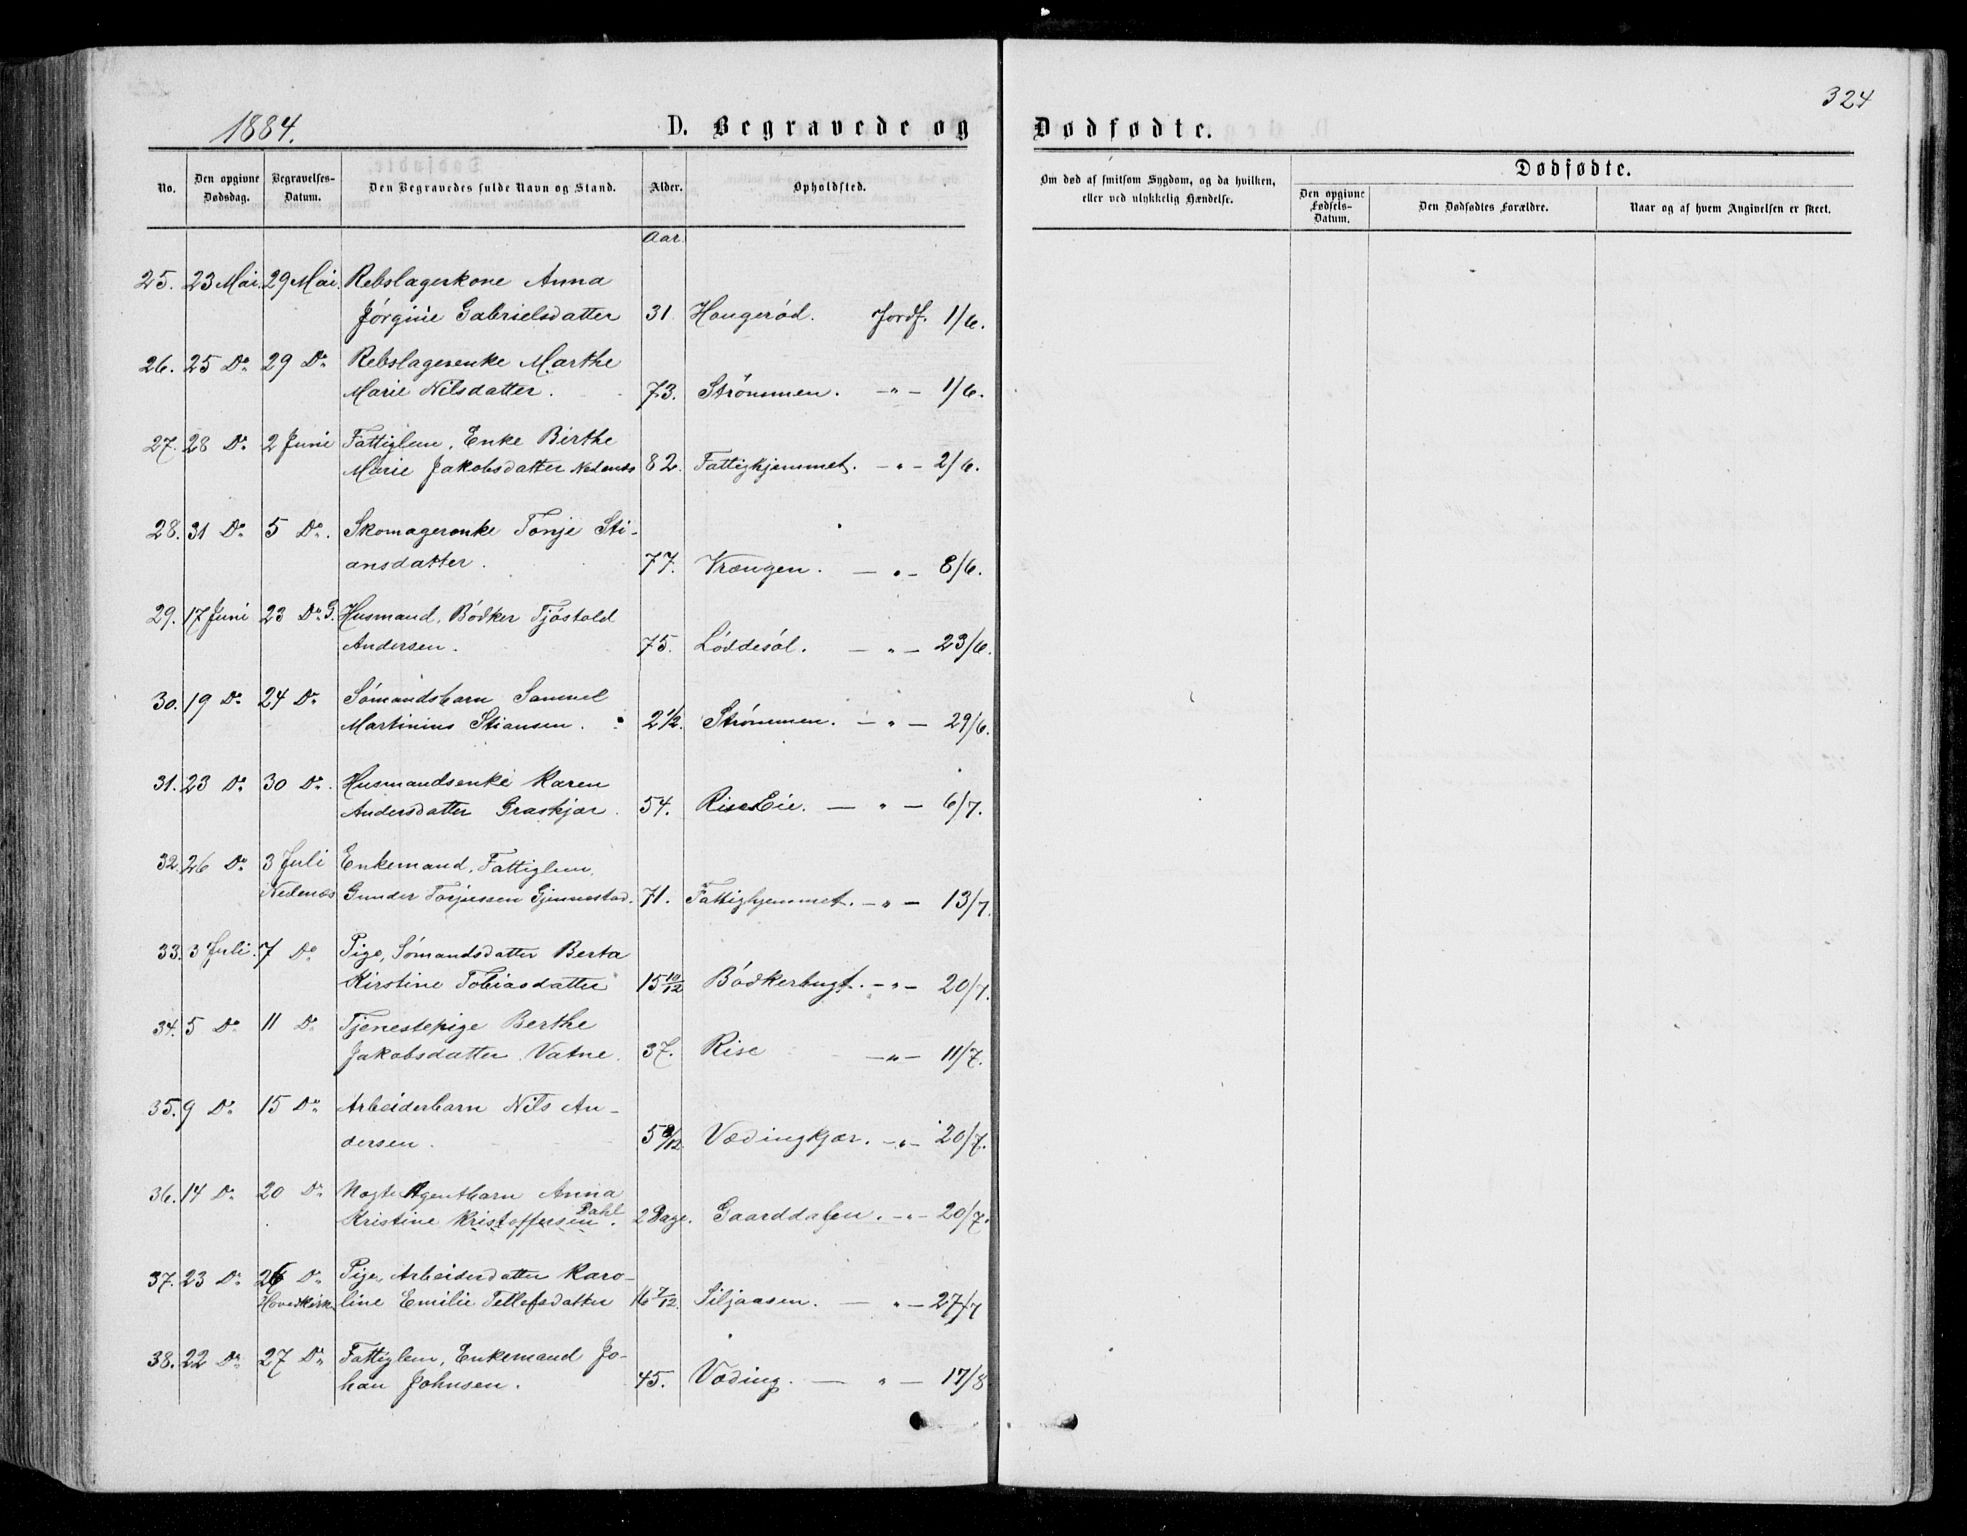 324
1884.
D. Begravede og Dødfødte.
No.
Den opgivne Dødsdag.
Begravelses-Datum.
Den Begravedes fulde Navn og Stand.
Alder.
Opholdsted.
Om død af smitsom Sygdom, og da hvilken, eller ved ulykkelig Hændelse.
Dødfødte.
Den opgivne Fødsels-Datum.
Den Dødfødtes Forældre.
Naar og af hvem Angivelsen er skeet.
Aar.
25. 23 Mai. 29 Mai. Rebslagerkone Anna
Jørgine Gabrielsdatter 31 Hougerød. Jordf. 1/6.
26. 25 Do 29 Do Rebslagerenke Marthe
Marie Nilsdatter. 73. Strømmen. -"- 1/6.
27. 28 Do 2 Juni Fattiglem, Enke Birthe
Marie Jakobsdatter Nedenæs 82. Fattighjemmet. -"- 2/6.
28. 31 Do 5 Do. Skomagerenke Tonje Sti-
ansdatter. 77. Vrængen. -"- 8/6.
29. 17 Juni 23 Do Husmand, Bødker Tjøstold
Andersen. 75. Løddesøl. -"- 23/6.
30. 19 Do 24 Do Sømandsbarn Samuel
Martinius Stiansen. 2 1/2. Strømmen. -"- 29/6.
31. 23 Do 30 Do. Husmandsenke Karen
Andersdatter Graskjær. 54. Rise Eie. -"- 6/7.
32. 26 Do 3 Juli Enkemand, Fattiglem,
Nedenæs Gunder Torjussen Gjennestad. 71. Fattighjemmet. -"- 13/7.
33. 3 Juli. 7 Do Pige, Sømandsdatter Berta
Kirstine Tobiasdatter 15 10/12 Bødkerbugt. -"- 20/7.
34. 5 Do 11 Do Tjenestepige Berthe
Jakobsdatter Vatne. 37. Rise -"- 11/7.
35. 9 Do 15 Do Arbeiderbarn Nils An-
dersen. 5 8/12 Vædingkjær. -"- 20/7.
36. 14 Do 20 Do Uægte Agentbarn Anna
Kristine Kristoffersen Dahl. 2 Dage. Gaarddalen. -"- 20/7.
37. 23 Do 26 Do Pige, Arbeiderdatter Karo-
Hovedkirken line Emilie Tellefsdatter 16 7/12. Siljaasen. -"- 27/7
38. 22 Do 27 Do Fattiglem, Enkemand Jo-
han Johnsen. 45. Væding. -"- 17/8.